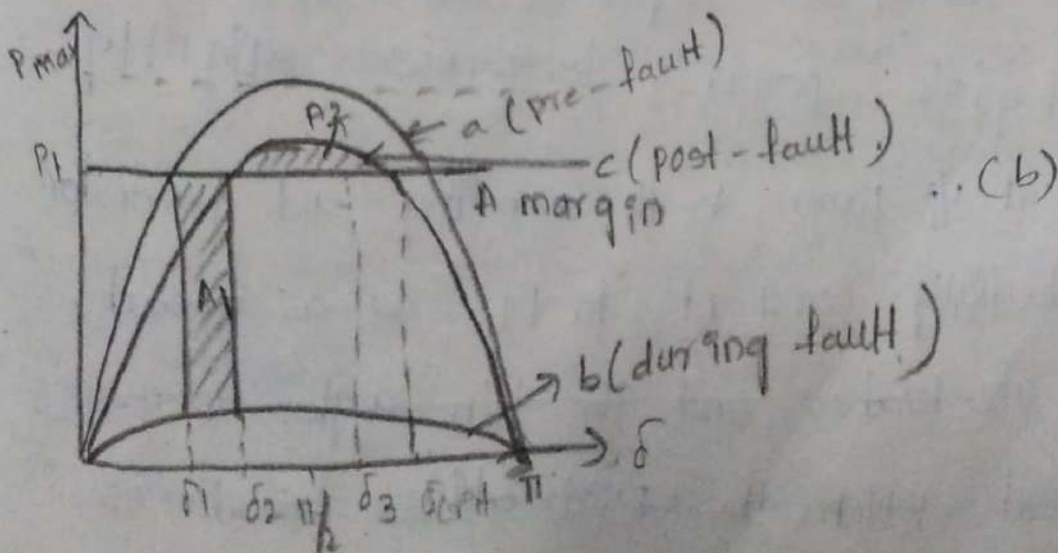 Pmax
a (pre-fault)
A2
P1
c (post-fault)
A margin
.. (b)
A1
b (during fault)
δ
δ1 δ2 π/2 δ3 δcrit π